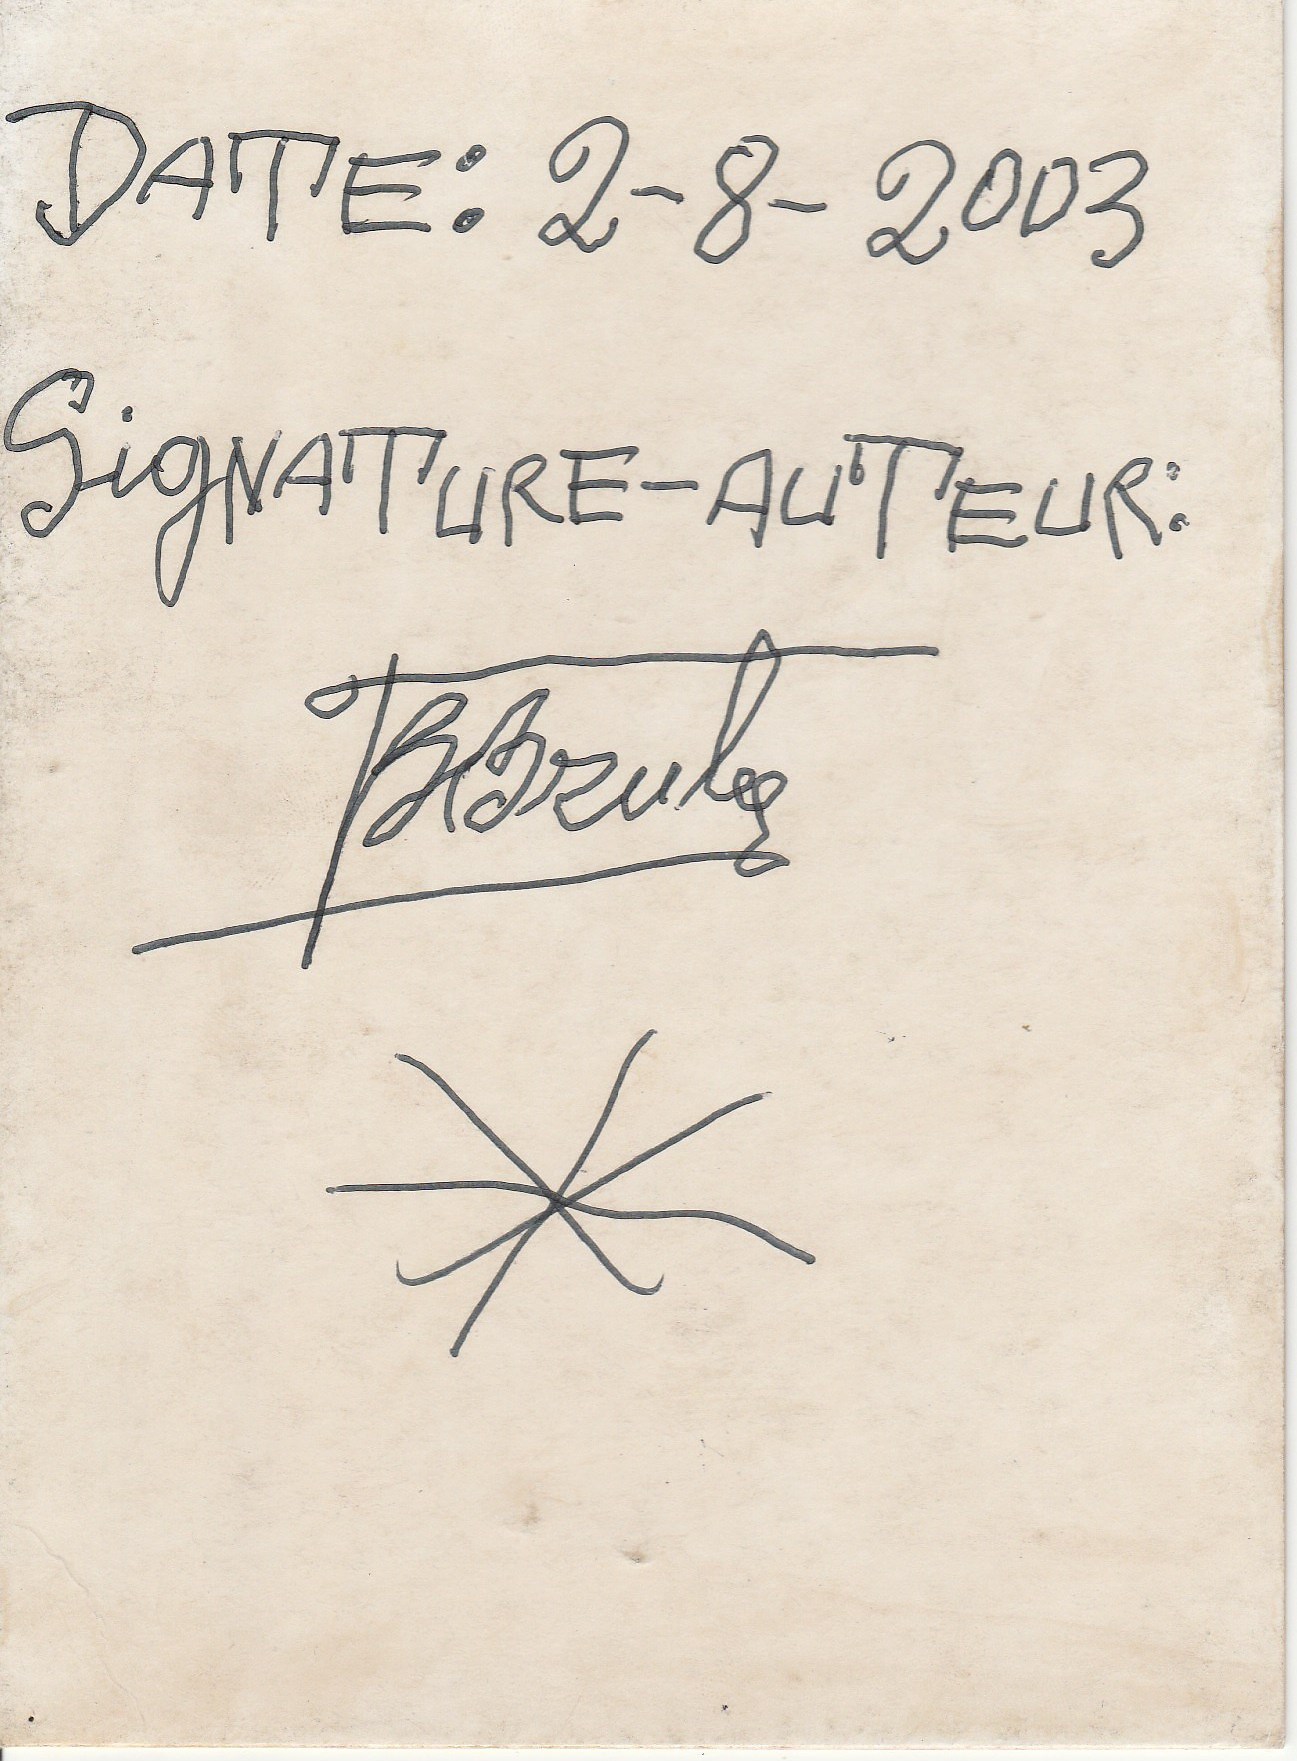 DATE: 2-8-2003
SIGNATURE-AUTEUR: